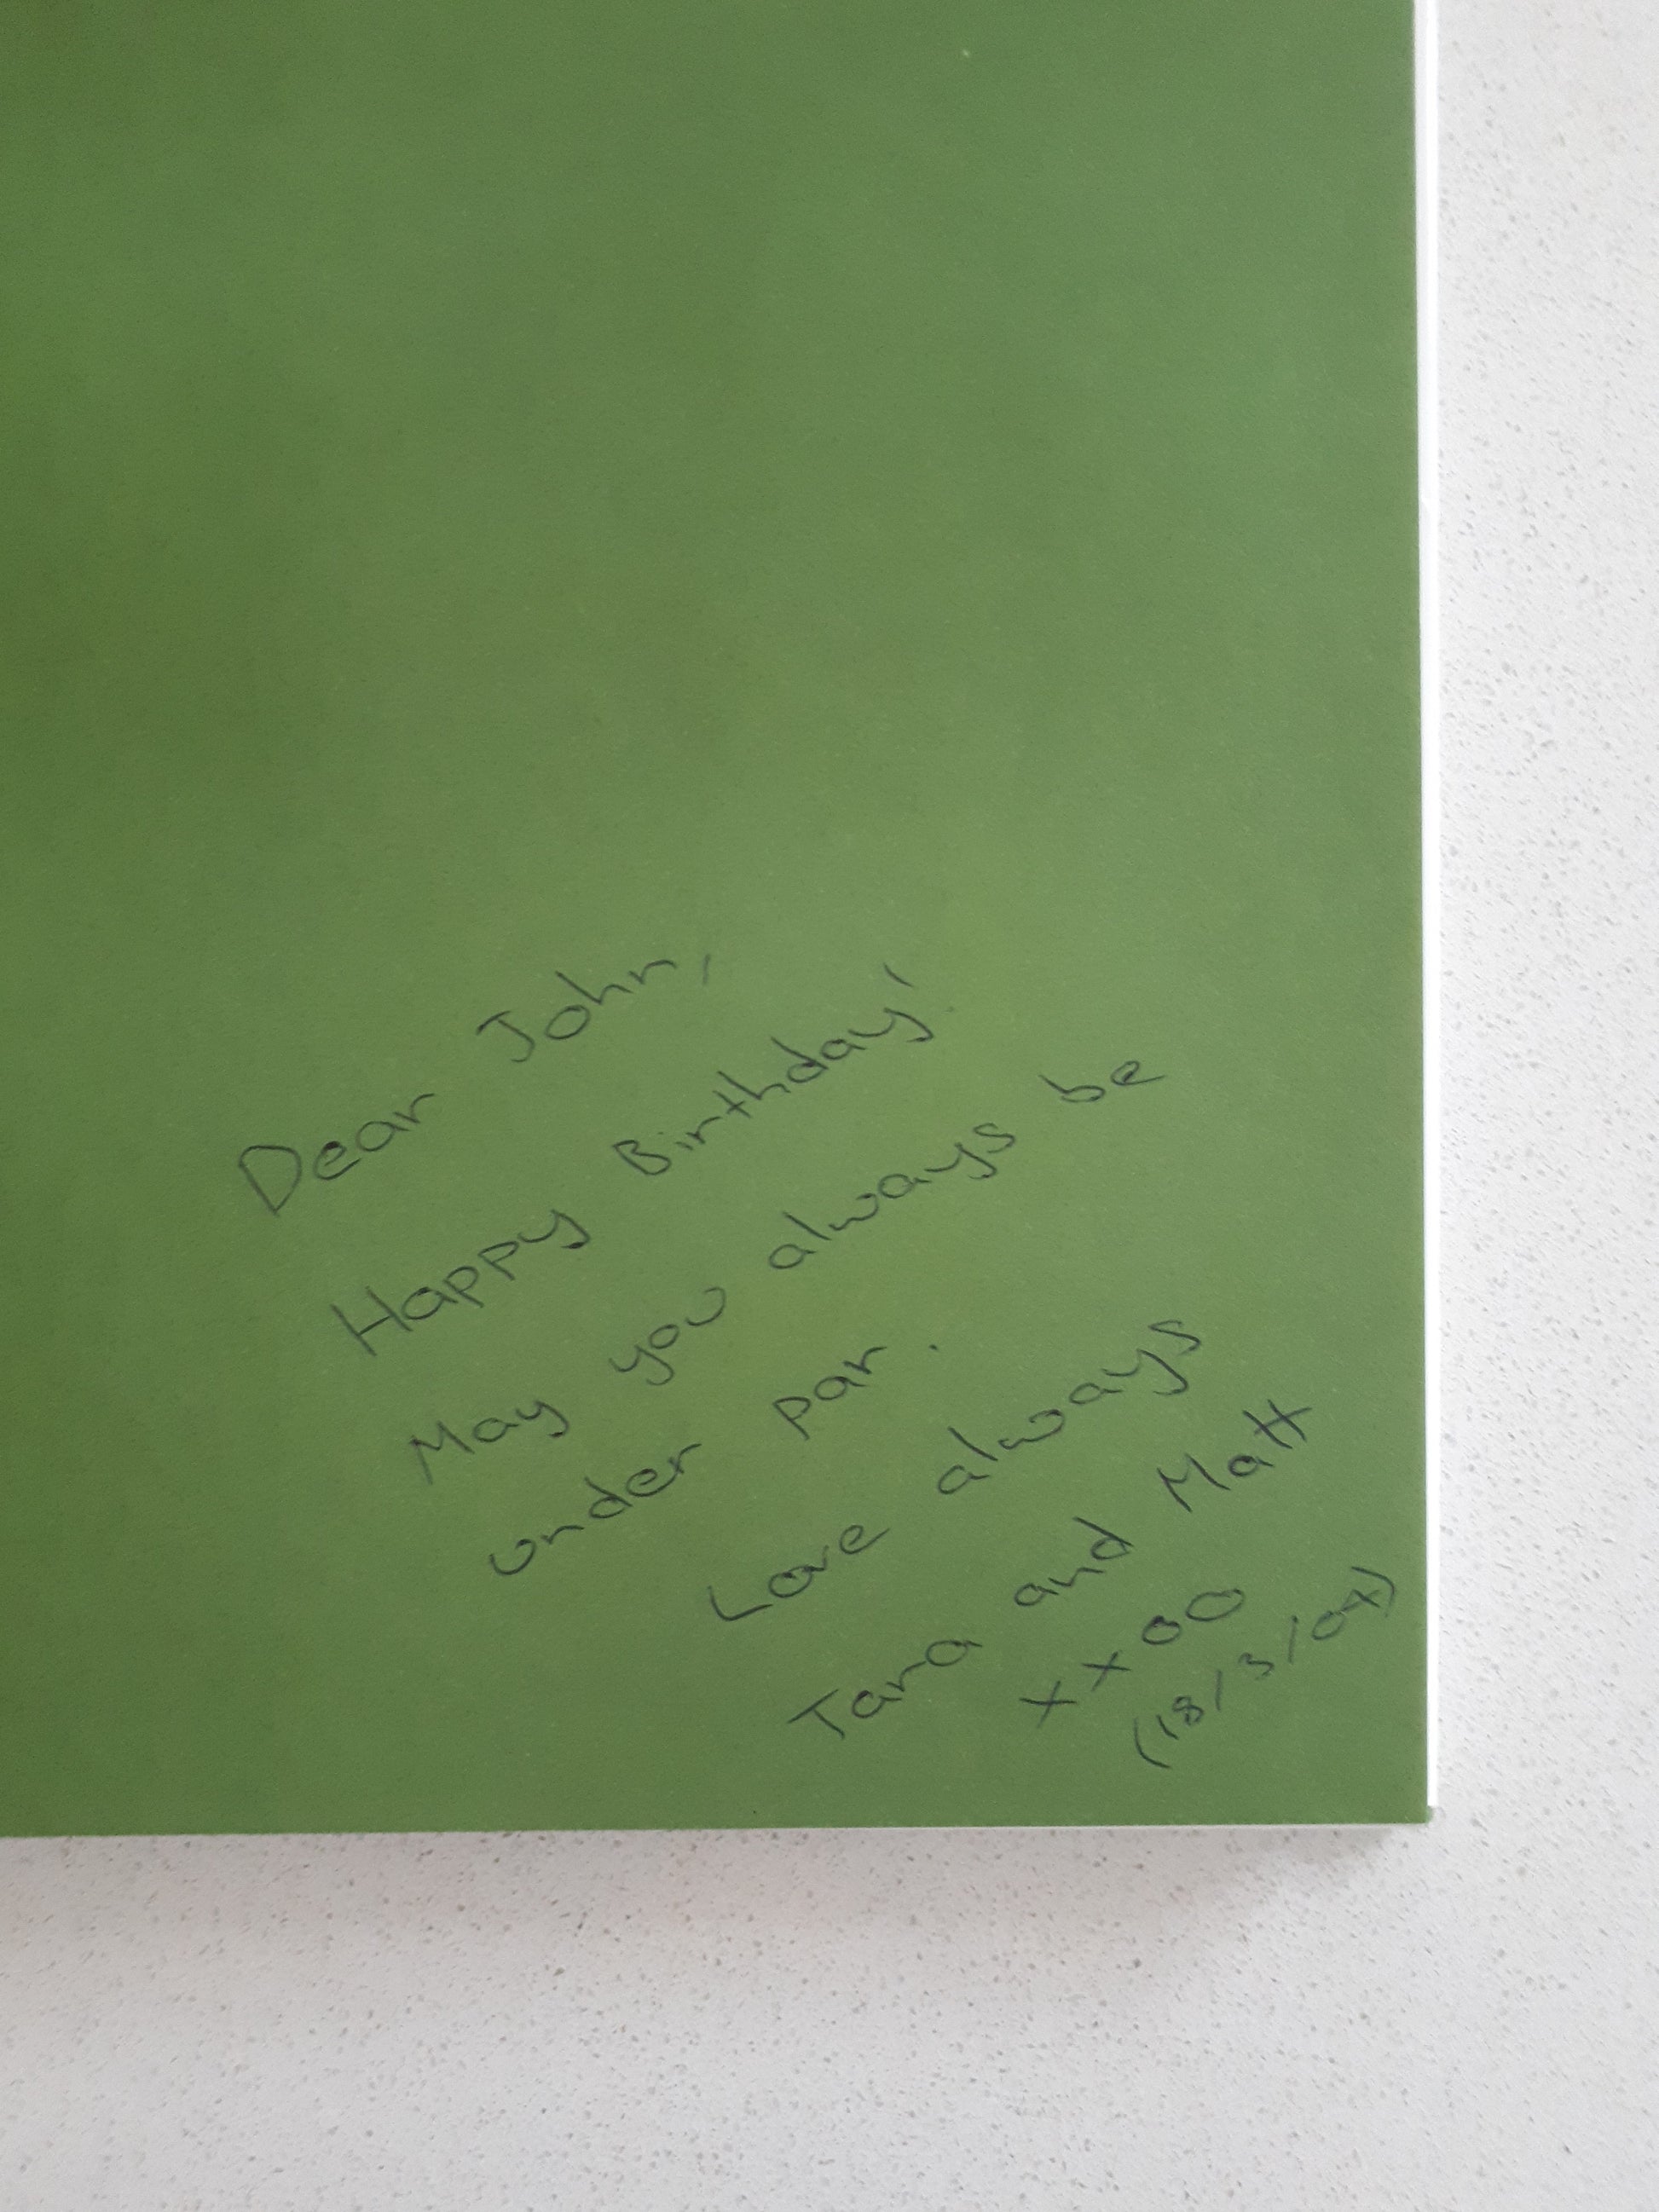 Dear John,
Happy Birthday!
May you always be
under par.
Love always
Tara and Matt
xxoo
(18/3/04)